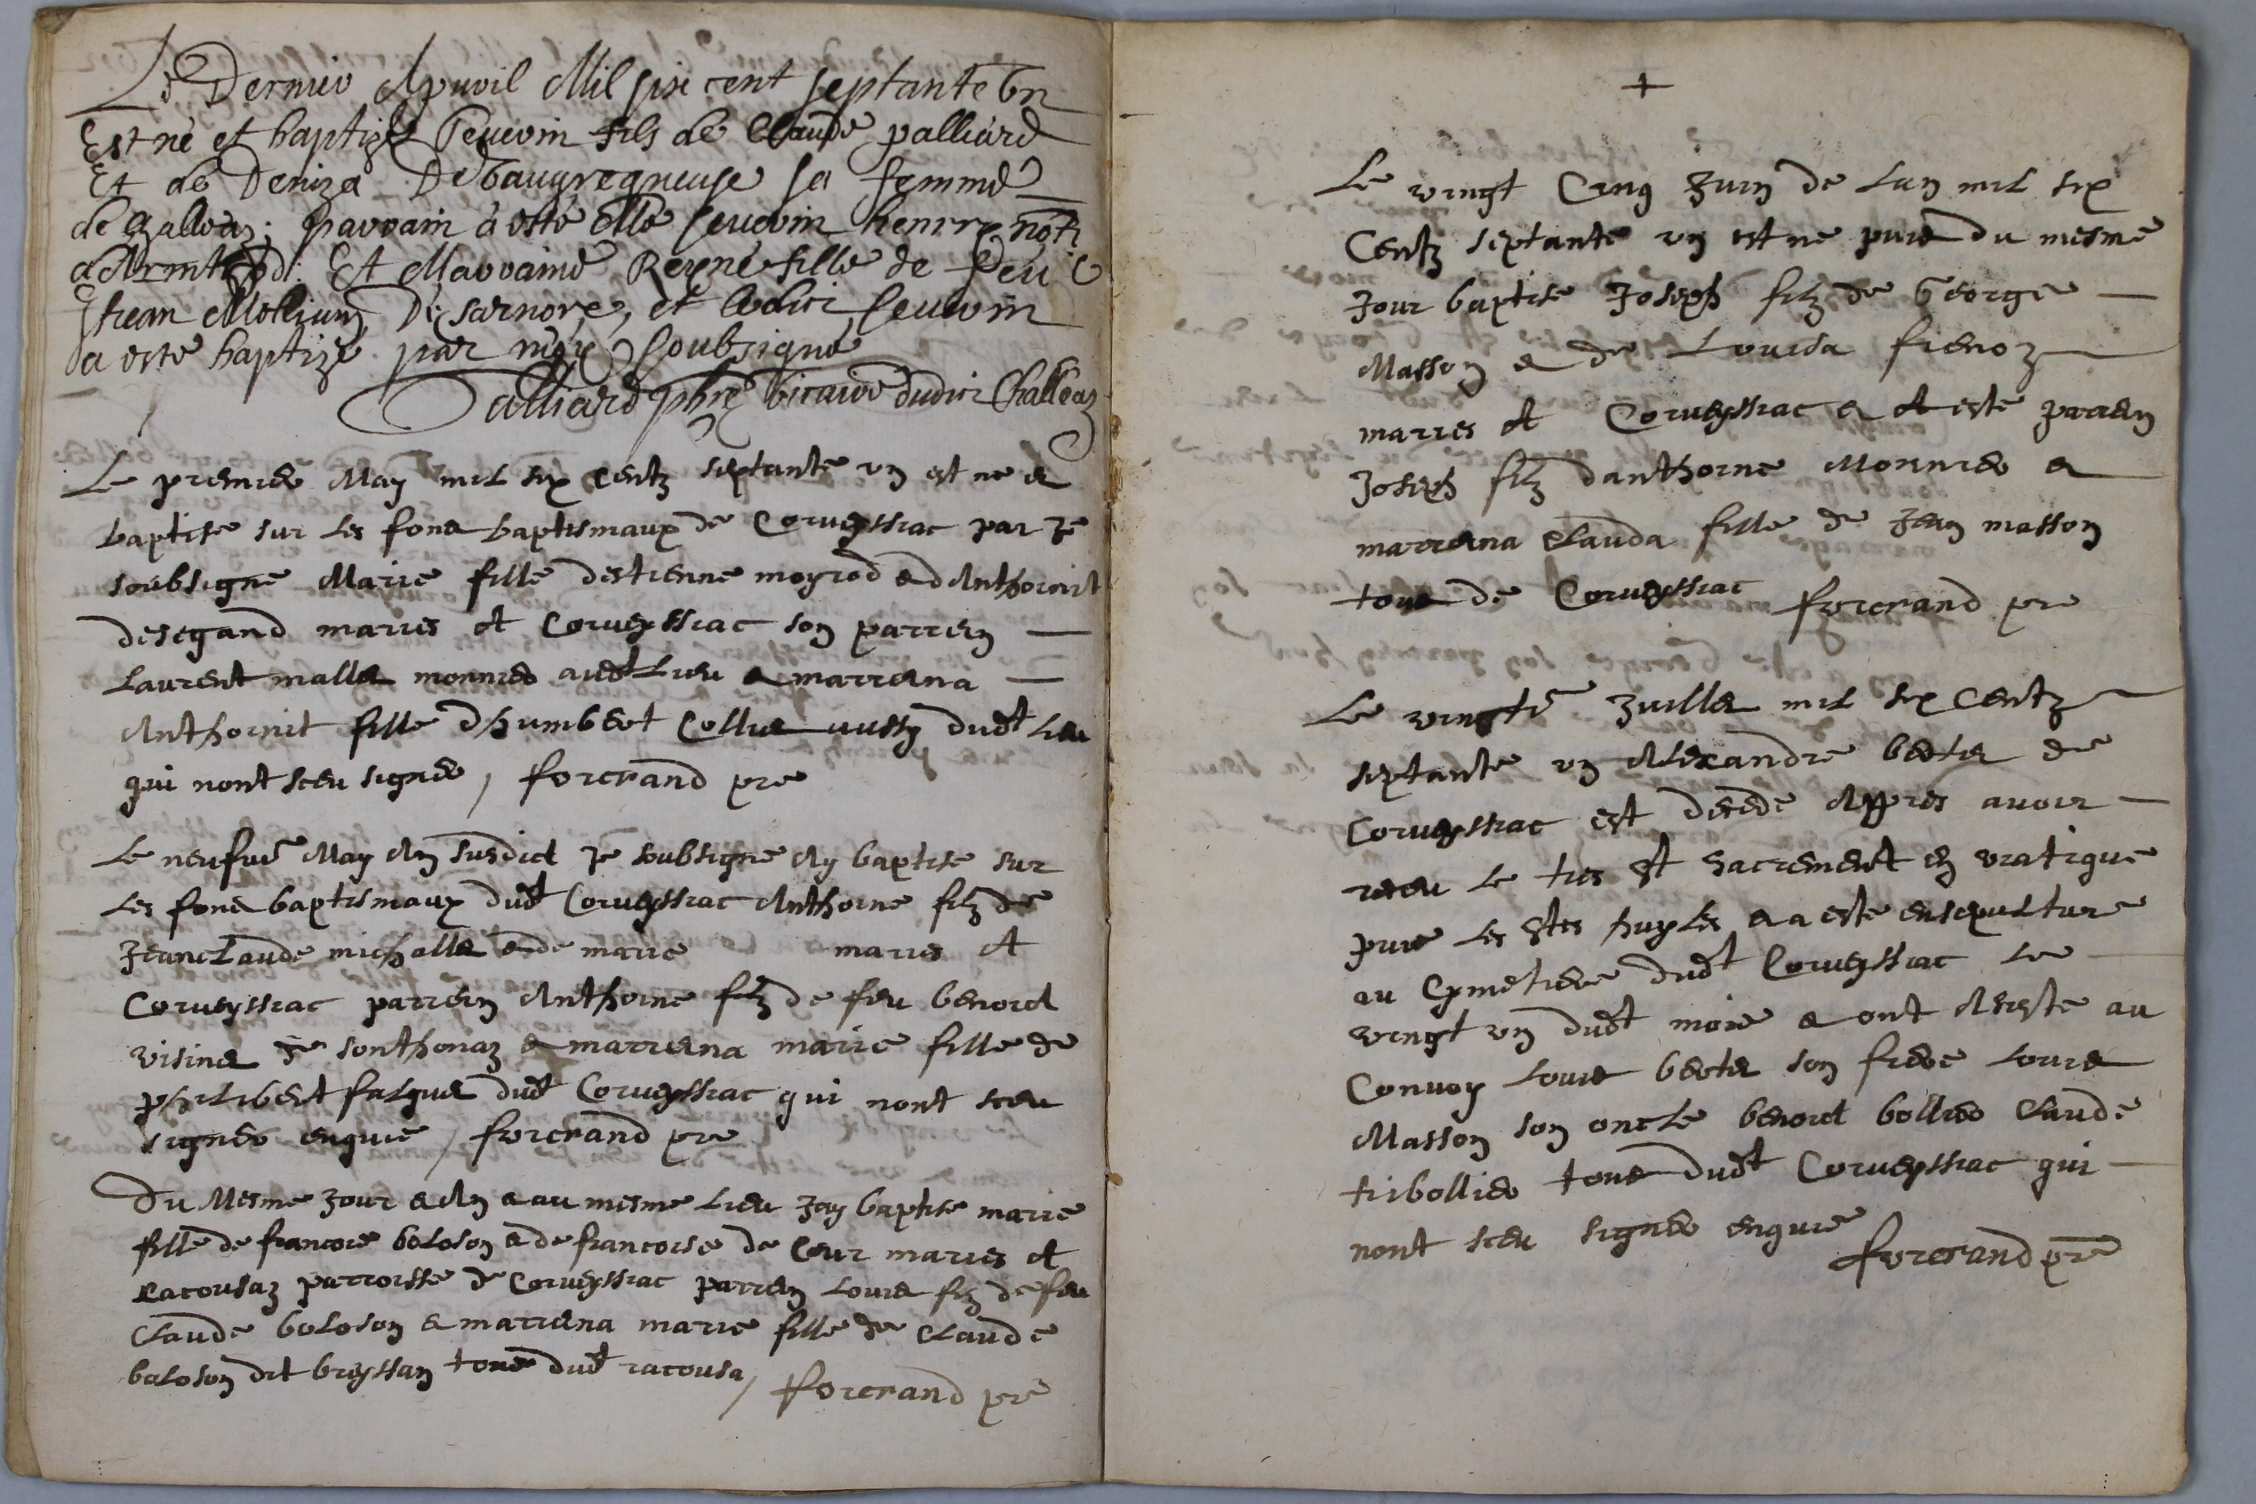 Le Dernier Apuril Mil six cent septante Un
Est né et baptizé Seuerin fils de Claude palliard
Et de Deniza De Vaugregneuse sa femme
de challeaz; parrain à esté Mre Seuerin henrry not.
Et Marraine Reyne fille de feu
Jhean Molliung De sarnore, et ledict Seuerin
a esté baptizé par moy soubsigné
Palliard pbre vicaire dudict Challeaz
Le premier May mil six centz septante un est ne et
baptise sur les fons baptismaux de Corueyssiac par Je
soubsigne Marie fille destienne moyrod et dAnthoinit
desegand maries et Corueyssiac son parrein
Laurent mallet monnier audt Lieu et marreina
Anthoinit fille dhumbert Collet aussy dudt lieu
qui nont sceu signer, forcrand pre
Le neufuie May An susdict Je soubsigne Ay baptise sur
les fons baptismaux dudt Corueyssiac Anthoine filz de
Jeanclaude michallet et de marie maries et
Corueyssiac parrein Anthoine filz de feu benoict
visinet de sonthonaz et marreina marie fille de
philibert falquet dudt Corueyssiac qui nont sceu
signer enquis, forcrand pre
Du Mesme Jour et An et au mesme Lieu Jay baptise marie
fille de francois boloson et de francoise de Cour maries et
Racousaz parroisse de Corueyssiac parrein Louis filz de feu
Claude boloson et marreina marie fille de Claude
boloson dit breyssan tous dudt racousa, forcrand pre
+
Le vingt Cinq Juin de Lan mil six
Centz septante un est ne puis du mesme
Jour baptise Joseph filz de George
Masson et de Louisa frenoz
maries et Corueyssiac et at este parrein
Joseph filz danthoine Monnier et
marreina Clauda fille de Jean masson
tous de Corueyssiac forcrand pre
Le vingtie Juillet mil six Centz
septante un Alexandre bertet de
Corueyssiac est decede Appres auoir
receu le tres St Sacrement en viatique
puis les Stes huyles et a este ensepulture
au Cymetiere dudt Corueyssiac Le
vingt un dudt mois et ont Assiste au
Conuoy Louis bertet son frere Louis
Masson son oncle benoict bollied Claude
tribollier tous dudt Corueyssiac qui
nont sceu signer enquis
forcrand pre